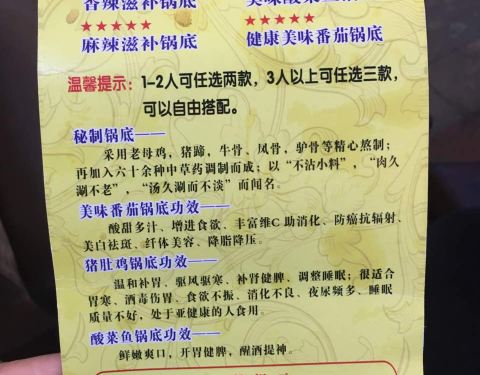 香辣滋补锅底
★★★★★
★★★★★
麻辣滋补锅底
健康美味番茄锅底
温馨提示：1-2人可任选两款，3人以上可任选三款，
可以自由搭配。
秘制锅底——
采用老母鸡，猪蹄，牛骨、凤骨，驴骨等精心熬制；
再加入六十余种中草药调制而成；以“不沾小料”，“肉久
涮不老”，“汤久涮而不淡”而闻名。
美味番茄锅底功效——
酸甜多汁、增进食欲、丰富维C 助消化、防癌抗辐射、
美白祛斑、纤体美容、降脂降压。
猪肚鸡锅底功效——
温和补胃、驱风驱寒、补肾健脾、调整睡眠；很适合
胃寒、酒毒伤胃、食欲不振、消化不良、夜尿频多、睡眠
质量不好，处于亚健康的人食用。
酸菜鱼锅底功效——
鲜嫩爽口，开胃健脾，醒酒提神。